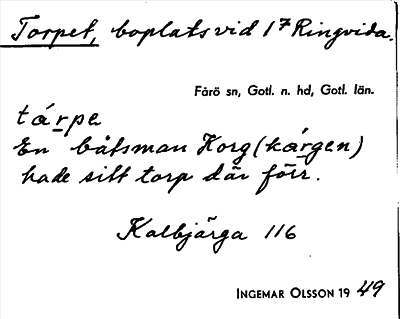 Torpet, boplats vid 1⁷ Ringvida.
Fårö sn, Gotl. n. hd, Gotl. län.
tárpe
En båtsman Korg (kárgen)
hade sitt torp där förr.
Kalbjärga 116
INGEMAR OLSSON 19 49